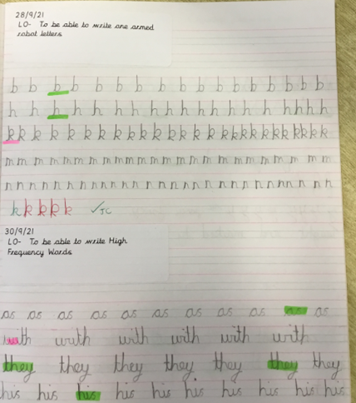 28/9/21
LO- To be able to write one armed
robot letters
b b b b b b b b b b b b b b b
h h h h h h h h h h h h h h h h h
k k k k k k k k k k k k k k k k k k k k k k k k k
m m m m m m m m m m m m m m m m m m m m
n n n n n n n n n n n n n n n n n n n n n n n n
k k k k k ✓TC
30/9/21
LO- To be able to write High
Frequency Words
as as as as as as as as as as as as
with with with with with with
they they they they they they they
his his his his his his his his his